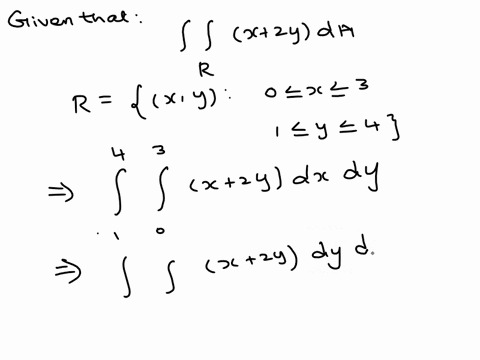 Given that: ∫ ∫ (x+2y) dA
R
R = {(x, y): 0 ≤ x ≤ 3
1 ≤ y ≤ 4}
4 3
⇒ ∫ ∫ (x+2y) dx dy
1 0
⇒ ∫ ∫ (x+2y) dy d